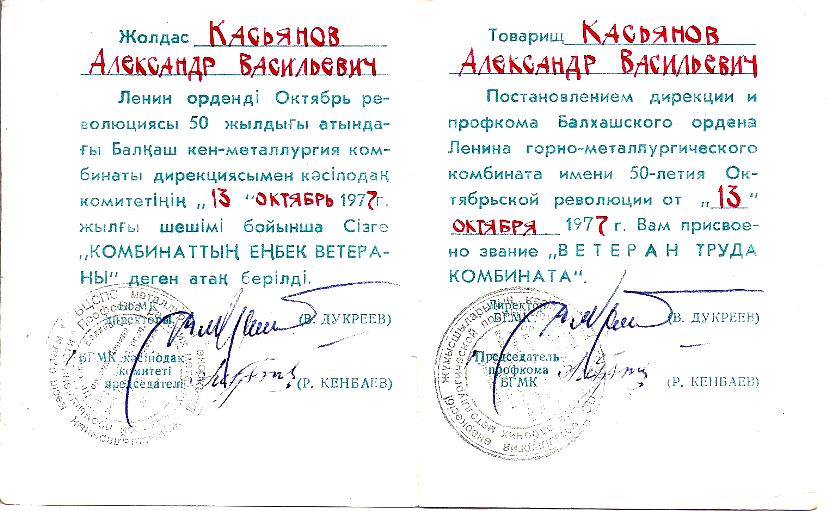 Жолдас КАСЬЯНОВ
АЛЕКСАНДР ВАСИЛЬЕВИЧ
Ленин орденді Октябрь ре-
волюциясы 50 жылдығы атында-
ғы Балқаш кен-металлургия ком-
бинаты дирекциясымен кәсіподақ
комитетінің „13 "ОКТЯБРЬ 1977г.
жылғы шешімі бойынша Сізге
„КОМБИНАТТЫҢ ЕҢБЕК ВЕТЕРА-
НЫ" деген атақ берілді.
БГМК
директоры (В. ДУКРЕЕВ)
БГМК кәсіподақ
комитеті
председателі (Р. КЕНБАЕВ)
Товарищ КАСЬЯНОВ
АЛЕКСАНДР ВАСИЛЬЕВИЧ
Постановлением дирекции и
профкома Балхашского ордена
Ленина горно-металлургического
комбината имени 50-летия Ок-
тябрьской революции от „13"
ОКТЯБРЯ 1977 г. Вам присвое-
но звание „ВЕТЕРАН ТРУДА
КОМБИНАТА".
Директор
БГМК (В. ДУКРЕЕВ)
Председатель
профкома
БГМК (Р. КЕНБАЕВ)